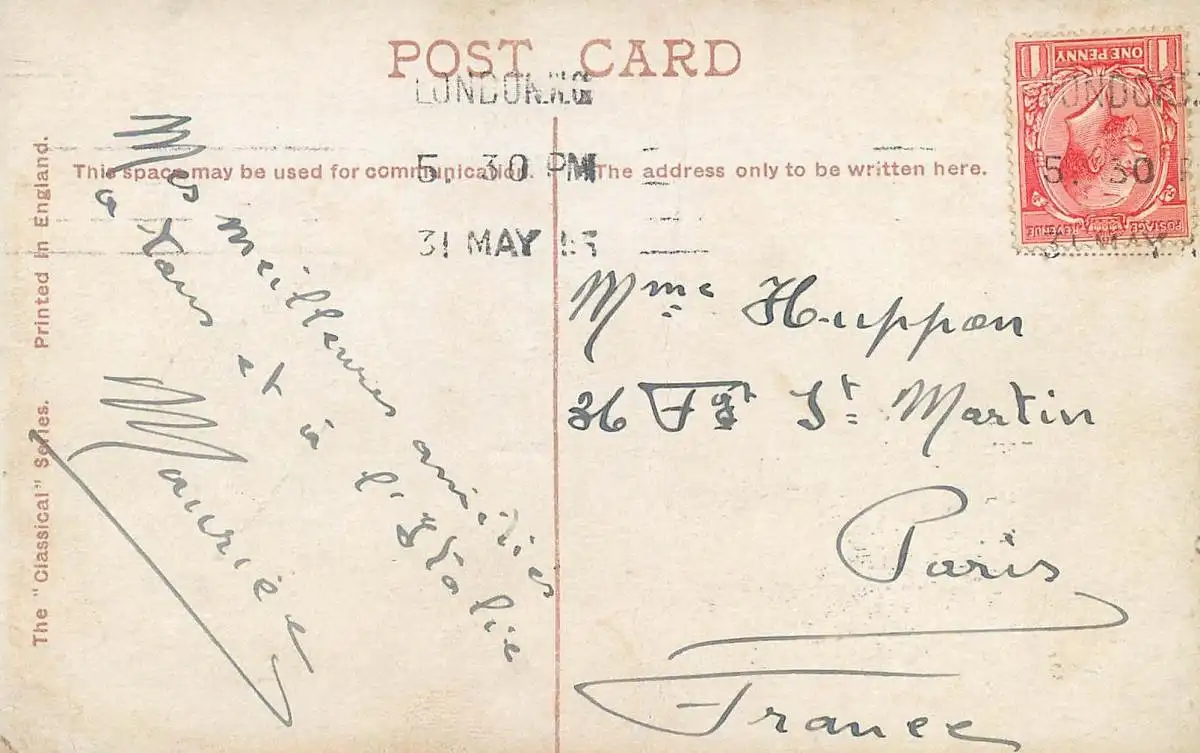 POST CARD
LONDON.W.C
5. 30 PM
31 MAY
This space may be used for communication.
The address only to be written here.
ONE PENNY
POSTAGE
REVENUE
LONDON.
5. 30 P
31 MAY
Printed in England.
The "Classical" Series.
Mes meilleures amitiés
à tous et à l'Italie
Maurice
Mme Huppon
36 Fg St Martin
Paris
France